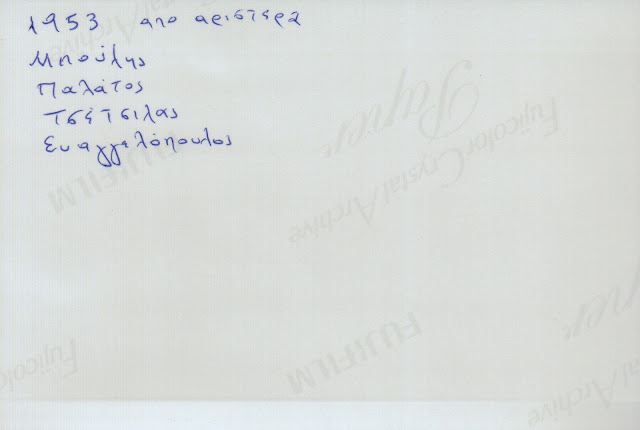 1953 απο αριστερα
Μπούλης
Παλάτος
Τσέτσιλας
Ευαγγελόπουλος
Paper
Fujicolor Crystal Archive
FUJIFILM
FUJIFILM
Fujicolor
Paper
Crystal Archive